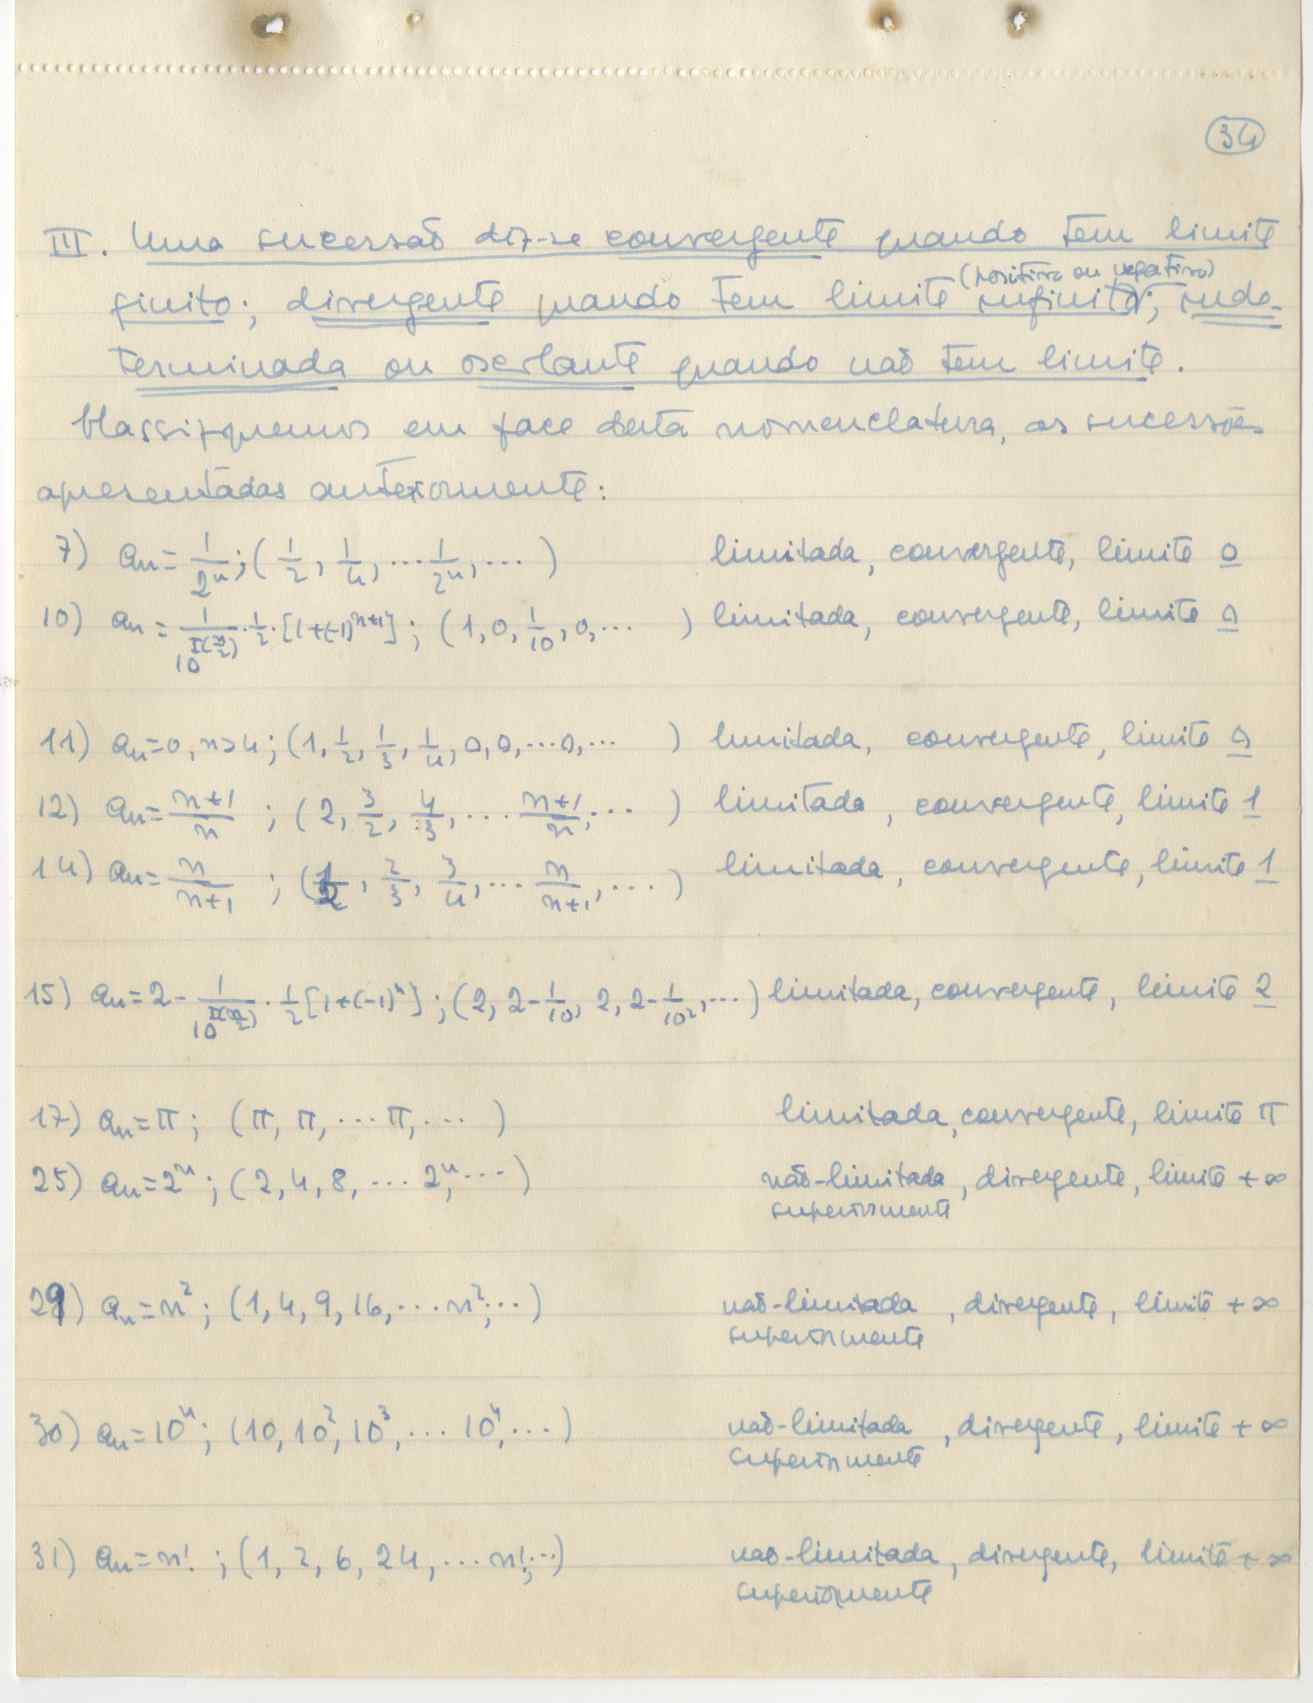 34
III. Uma sucessão diz-se convergente quando tem limite
(positivo ou negativo)
finito; divergente quando tem limite infinito; inde-
terminada ou oscilante quando não tem limite.
Classifiquemos em face desta nomenclatura, as sucessões
apresentadas anteriormente:
7) aₙ = 1/2ⁿ; (1/2, 1/4, ... 1/2ⁿ, ... ) limitada, convergente, limite 0
10) aₙ = 1/10^I(n/2) · 1/2 · [1+(-1)ⁿ⁺¹]; (1, 0, 1/10, 0, ... ) limitada, convergente, limite 0
11) aₙ = 0, n>4; (1, 1/2, 1/3, 1/4, 0, 0, ... 0, ... ) limitada, convergente, limite 0
12) aₙ = (n+1)/n ; (2, 3/2, 4/3, ... (n+1)/n, ... ) limitada, convergente, limite 1
14) aₙ = n/(n+1) ; (1/2, 2/3, 3/4, ... n/(n+1), ... ) limitada, convergente, limite 1
15) aₙ = 2 - 1/10^I(n/2) · 1/2 [1+(-1)ⁿ]; (2, 2-1/10, 2, 2-1/10², ... ) limitada, convergente, limite 2
17) aₙ = π; (π, π, ... π, ... ) limitada, convergente, limite π
25) aₙ = 2ⁿ; (2, 4, 8, ... 2ⁿ, ... ) não-limitada, divergente, limite +∞
superiormente
29) aₙ = n²; (1, 4, 9, 16, ... n², ... ) não-limitada, divergente, limite +∞
superiormente
30) aₙ = 10ⁿ; (10, 10², 10³, ... 10ⁿ, ... ) não-limitada, divergente, limite +∞
superiormente
31) aₙ = n! ; (1, 2, 6, 24, ... n!, ... ) não-limitada, divergente, limite +∞
superiormente